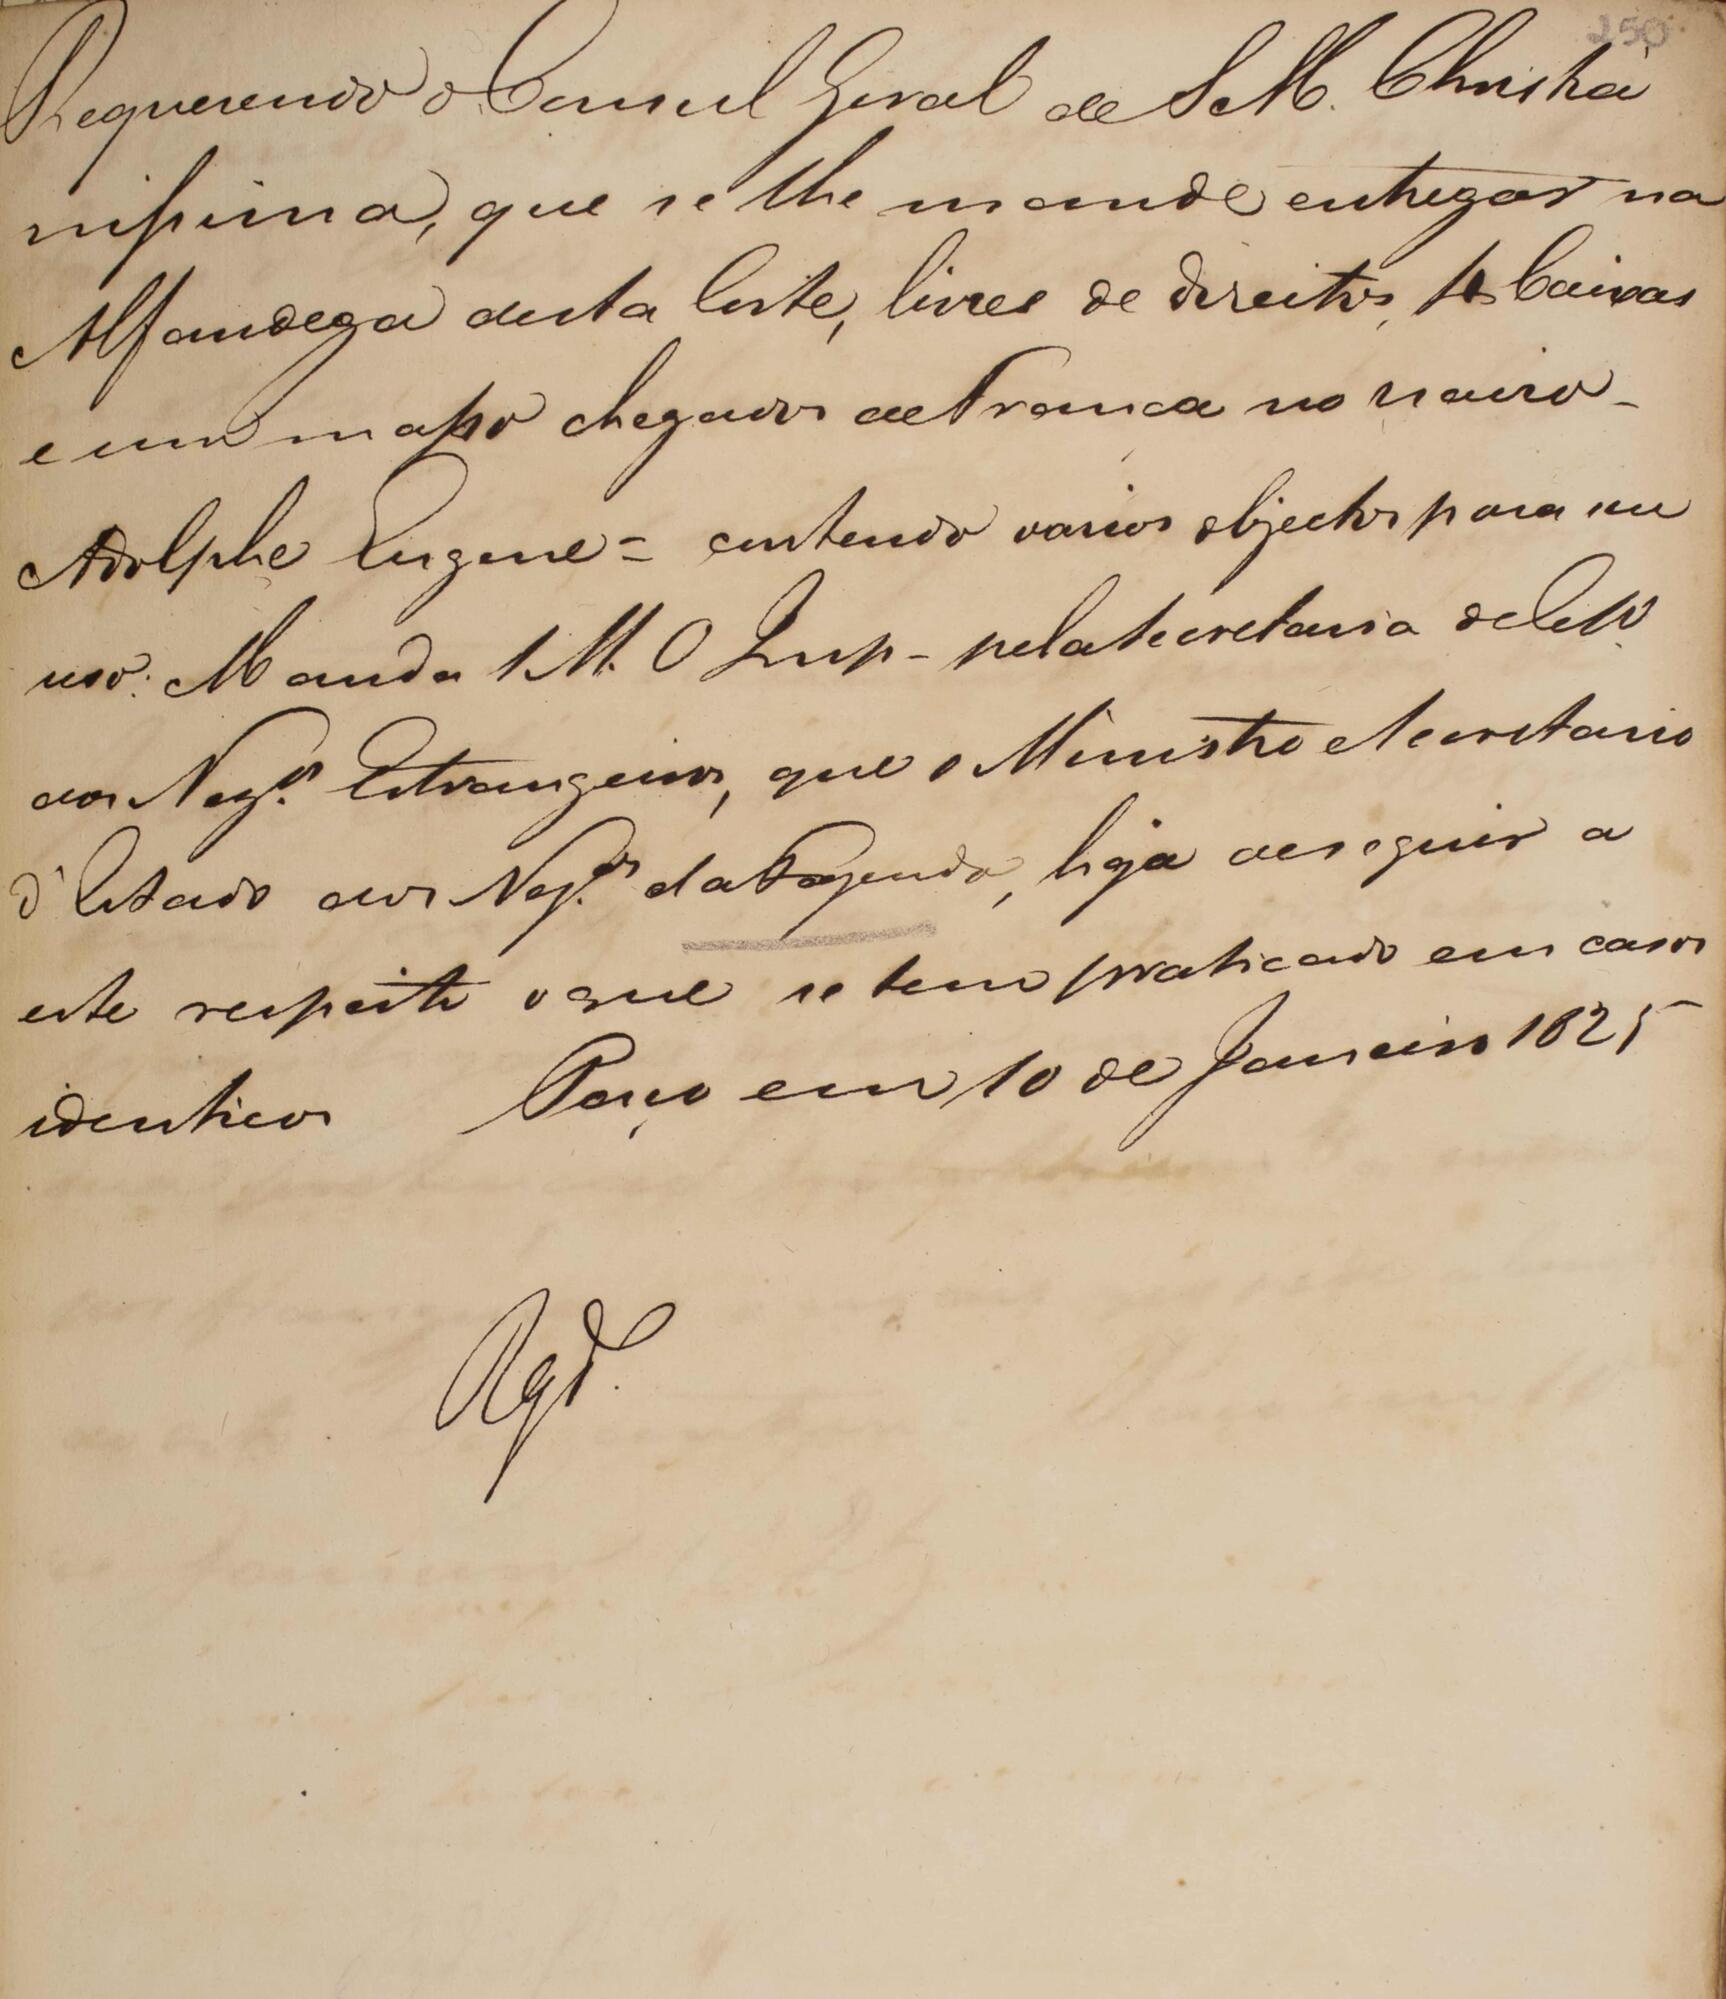 250
Requerendo o Consul Geral de S. M. Christia
nissima, que se lhe mande entregar na
Alfandega desta Corte, livres de direitos, Caixas
e um masso chegados de França no navio -
Adolphe Eugene = contendo varios objectos para seu
uso: Manda S. M. O Imp - pela Secretaria de
dos Neg.os Estrangeiros, que o Ministro e Secretario
d'Estado dos Neg.os da Fazenda, haja de seguir a
este respeito o que se tem praticado em casos
identicos Paço em 10 de Janeiro 1825